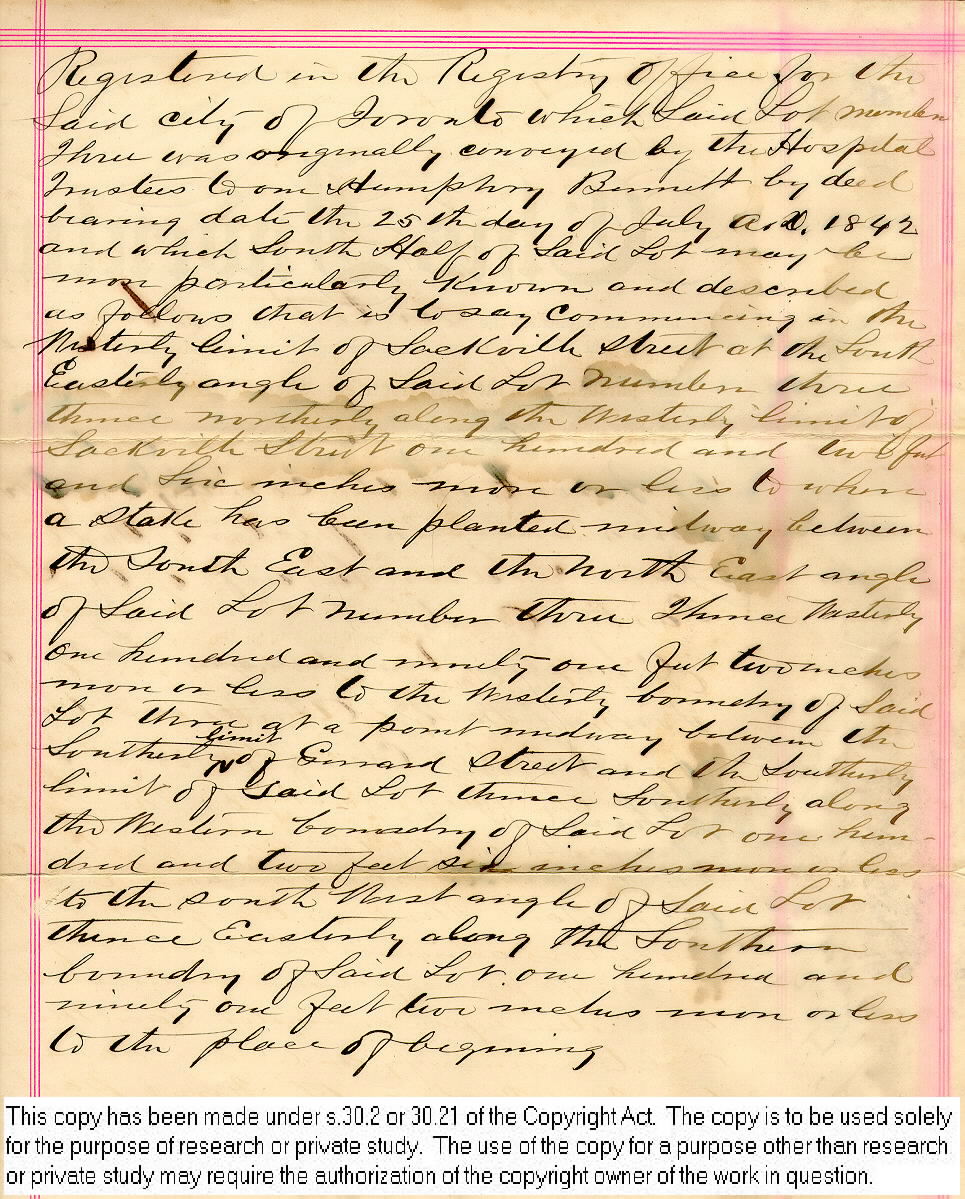 Registered in the Registry office for the
Said city of Toronto which Said Lot number
Three was originally conveyed by the Hospital
Trustees to one Humphry Bennett by deed
bearing date the 25th day of July A.D. 1842
and which South Half of Said Lot may be
more particularly Known and described
as follows that is to say Commencing in the
Westerly limit of Sackville Street at the South
Easterly angle of Said Lot Number three
thence northerly along the Westerly limit of
Sackville Street one hundred and two feet
and Six inches more or less to where
a Stake has been planted midway between
the South East and the North East angle
of Said Lot Number three Thence Westerly
One hundred and ninety one feet two inches
more or less to the Westerly boundry of Said
Lot three at a point midway between the
Southerly limit of Gerrard Street and the Southerly
limit of Said Lot thence Southerly along
the Western boundry of Said Lot one hun-
dred and two feet six inches more or less
to the South West angle of Said Lot
thence Easterly along the Southern
boundry of Said Lot one hundred and
ninety one feet two inches more or less
to the place of begining
This copy has been made under s.30.2 or 30.21 of the Copyright Act. The copy is to be used solely
for the purpose of research or private study. The use of the copy for a purpose other than research
or private study may require the authorization of the copyright owner of the work in question.